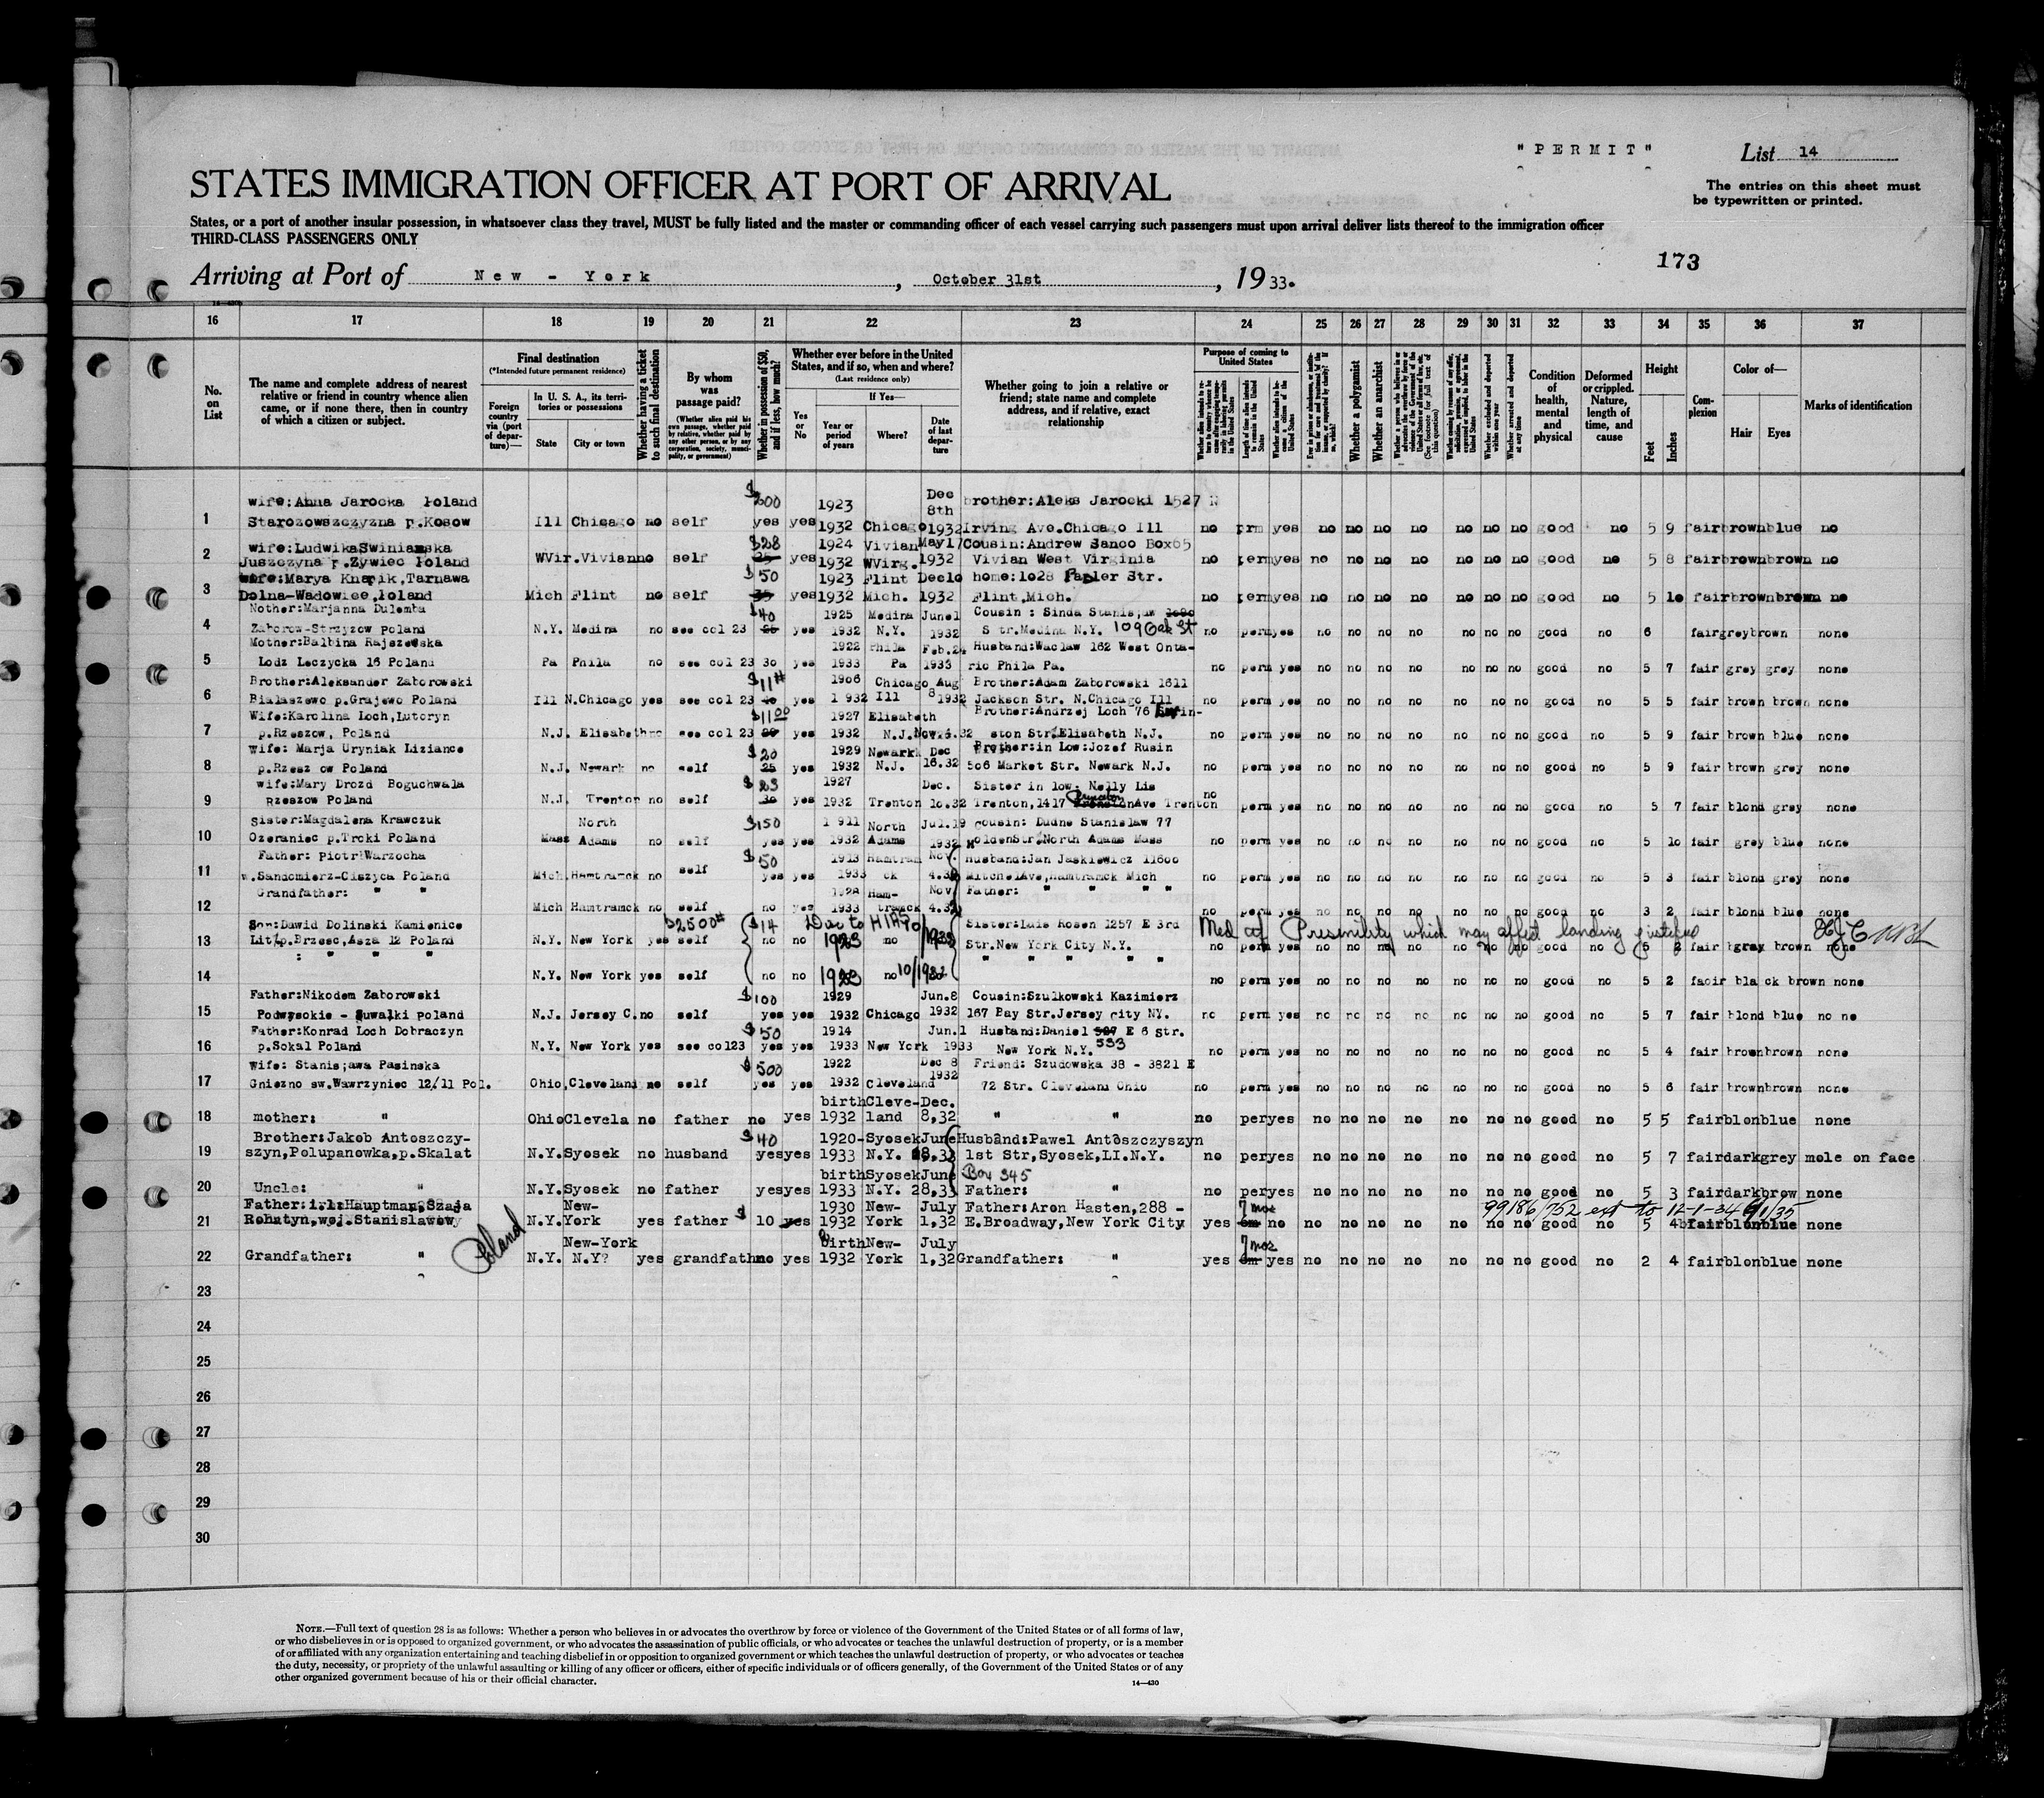 "PERMIT"
List 14
STATES IMMIGRATION OFFICER AT PORT OF ARRIVAL
The entries on this sheet must
be typewritten or printed.
States, or a port of another insular possession, in whatsoever class they travel, MUST be fully listed and the master or commanding officer of each vessel carrying such passengers must upon arrival deliver lists thereof to the immigration officer
THIRD-CLASS PASSENGERS ONLY
173
Arriving at Port of New - York, October 31st, 1933.
14-430
16 17 18 19 20 21 22 23 24 25 26 27 28 29 30 31 32 33 34 35 36 37
No. on List
The name and complete address of nearest relative or friend in country whence alien came, or if none there, then in country of which a citizen or subject.
Final destination
(*Intended future permanent residence)
Foreign country via (port of departure)—
In U. S. A., its territories or possessions
State
City or town
Whether having a ticket to such final destination
By whom was passage paid?
(Whether alien paid his own passage, whether paid by relative, whether paid by any other person, or by any corporation, society, municipality, or government)
Whether in possession of $50, and if less, how much?
Whether ever before in the United States, and if so, when and where?
(Last residence only)
Yes or No
If Yes—
Year or period of years
Where?
Date of last departure
Whether going to join a relative or friend; state name and complete address, and if relative, exact relationship
Purpose of coming to United States
Length of time alien intends to remain in the United States
Whether alien intends to become a citizen of the United States
Whether a polygamist
Whether an anarchist
Whether excluded and deported within one year
Whether arrested and deported at any time
Condition of health, mental and physical
Deformed or crippled. Nature, length of time, and cause
Height
Feet
Inches
Complexion
Color of—
Hair
Eyes
Marks of identification
wife:Anna Jarocka Poland $200 1923 Dec 8th brother:Aleks Jarocki 1527 N
1 Starozowszczyzna p.Kosow Ill Chicago no self yes yes 1932 Chicago 1932 Irving Ave.Chicago Ill no prm yes no no no no no no no good no 5 9 fair brown blue no
wife:Ludwika Swiniamska $28 1924 Vivian May17 Cousin:Andrew Sanco Box65
2 Juszczyna p.Zywiec Poland WVir. Vivian no self 25 yes 1932 WVirg. 1932 Vivian West Virginia no perm yes no no no no no no no good no 5 8 fair brown brown no
wife:Marya Knapik,Tarnawa $50 1923 Flint Dec10 home:1028 Padler Str.
3 Dolna-Wadowice,Poland Mich Flint no self 35 yes 1932 Mich. 1932 Flint,Mich. no perm yes no no no no no no no good no 5 10 fair brown brown no
Mother:Marjanna Dulemba $40 1925 Medina June1 Cousin : Sinda Stanis;aw
4 Zaborow-Strzyzow Poland N.Y. Medina no see col 23 yes 1932 N.Y. 1932 Str.Medina N.Y. 109 Oak St no perm yes no no no no no no no good no 6 fair grey brown none
Mother:Balbina Rajszewska 1922 Phila Feb.24 Husband:Waclaw 162 West Onta-
5 Lodz Leczycka 16 Poland Pa Phila no see col 23 30 yes 1933 Pa 1933 rio Phila Pa. no perm yes no no no no no no no good no 5 7 fair grey grey none
Brother:Aleksander Zaborowski $11 1906 Chicago Aug Brother:Adam Zaborowski 1611
6 Bialaszewo p.Grajewo Poland Ill N.Chicago yes see col 23 yes 1932 Ill 8 1932 Jackson Str. N.Chicago Ill no perm yes no no no no no no no good no 5 5 fair brown brown none
Wife:Karolina Loch,Lutoryn $11.00 1927 Elisabeth Brother:Andrzej Loch 76
7 p.Rzeszow, Poland N.J. Elisabeth no see col 23 yes 1932 N.J. ston Str.Elisabeth N.J. no perm yes no no no no no no no good no 5 9 fair brown blue none
Wife: Marja Uryniak Liziance $20 1929 Newark Dec Brother:in Low:Jozef Rusin
8 p.Rzeszow Poland N.J. Newark no self 25 yes 1932 N.J. 16.32 506 Market Str. Newark N.J. no perm yes no no no no no no no good no 5 9 fair brown grey none
wife:Mary Drozd Boguchwala $23 1927 Dec. Sister in low: Nelly Lis
9 Rzeszow Poland N.J. Trenton no self 30 yes 1932 Trenton 10.32 Trenton,1417 Princeton Ave Trenton no perm yes no no no no no no no good no 5 7 fair blond grey none
Sister:Magdalena Krawczuk North $150 1911 North Jul.19 Cousin: Dudne Stanislaw 77
10 Ozeraniec p.Troki Poland Mass Adams no self yes yes 1932 Adams 1932 HoldenStr.North Adams Mass no perm yes no no no no no no no good no 5 10 fair grey blue none
Father: Piotr Warzocha $50 1913 Hamtram Nov. Husband:Jan Jaskiewicz 11600
11 w.Sandomierz-Ciszyca Poland Mich. Hamtramck no self yes yes 1933 ck 4.32 MitchelAve,Hamtramck Mich no perm yes no no no no no no no good no 5 3 fair blond grey none
Grandfather: " " 1928 Ham- Nov Father: " " " "
12 Mich Hamtramck no self no yes 1933 tramck 4.32 no perm yes no no no no no no no good no 3 2 fair blond blue none
Son:Dawid Dolinski Kamienice $2500 $14 Due to HIAS Sister:Luis Rosen 1257 E 3rd Med cif which may affect landing
13 Lit/p.Brzesc,Asza 12 Poland N.Y. New York yes self no no 1923 no Str.New York City N.Y. no perm yes no no no no no no no good no 5 2 fair gray brown none
: " " " " " " " "
14 N.Y. New York yes self no no 1923 no no perm yes no no no no no no no good no 5 2 faoir black brown none
Father:Nikodem Zaborowski $100 1929 Jun.8 Cousin:Szulkowski Kazimierz
15 Podwysokie - Suwalki Poland N.J. Jersey C. no self yes yes 1932 Chicago 1932 167 Bay Str.Jersey city NY. no perm yes no no no no no no no good no 5 7 fair blond blue no ne
Father:Konrad Loch Dobraczyn $50 1914 Jun.1 Husband:Daniel 533 E 6 Str.
16 p.Sokal Poland N.Y. New York yes see col23 yes yes 1933 New York 1933 New York N.Y. no perm yes no no no no no no no good no 5 4 fair brown brown none
Wife: Stanis;awa Pasinska $500 1922 Dec 8 Friend: Szudowska 38 - 3821 E
17 Gniezno sw.Wawrzyniec 12/11 Pol. Ohio,Cleveland no self yes yes 1932 Cleveland 1932 72 Str. Cleveland Ohio no perm yes no no no no no no no good no 5 6 fair brown brown none
birth Cleve- Dec.
18 mother: " Ohio Clevela no father no yes 1932 land 8,32 " " no per yes no no no no no no no good no 5 5 fair blon blue none
Brother:Jakob Antoszczy- $40 1920- Syosek June Husband:Pawel Antoszczyszyn
19 szyn,Polupanowka,p.Skalat N.Y. Syosek no husband yes yes 1933 N.Y. 28,33 1st Str,Syosek,LI.N.Y. no per yes no no no no no no no good no 5 7 fair dark grey mole on face
birth Syosek June Box 345
20 Uncle: " N.Y. Syosek no father yes yes 1933 N.Y. 28,33 Father: " no per yes no no no no no no no good no 5 3 fair dark brow none
Father:i.l:Hauptman,Szaja New- 1930 New- July Father:Aron Hasten,288 - 7 mos 99186/752 ext to 12-1-34 6/1/35
21 Rohatyn,woj.Stanislawow Poland N.Y. York yes father $10 yes 1932 York 1,32 E.Broadway,New York City yes 6m no no no no no no no no good no 5 4 fair blon blue none
New-York birth New- July 7 mos
22 Grandfather: " N.Y. N.Y? yes grandfath no yes 1932 York 1,32 Grandfather: " yes 6m yes no no no no no no no good no 2 4 fair blon blue none
23
24
25
26
27
28
29
30
NOTE.—Full text of question 28 is as follows: Whether a person who believes in or advocates the overthrow by force or violence of the Government of the United States or of all forms of law,
or who disbelieves in or is opposed to organized government, or who advocates the assassination of public officials, or who advocates or teaches the unlawful destruction of property, or is a member
of or affiliated with any organization entertaining and teaching disbelief in or opposition to organized government or which teaches the unlawful destruction of property, or who advocates or teaches
the duty, necessity, or propriety of the unlawful assaulting or killing of any officer or officers, either of specific individuals or of officers generally, of the Government of the United States or of any
other organized government because of his or their official character.
14—430